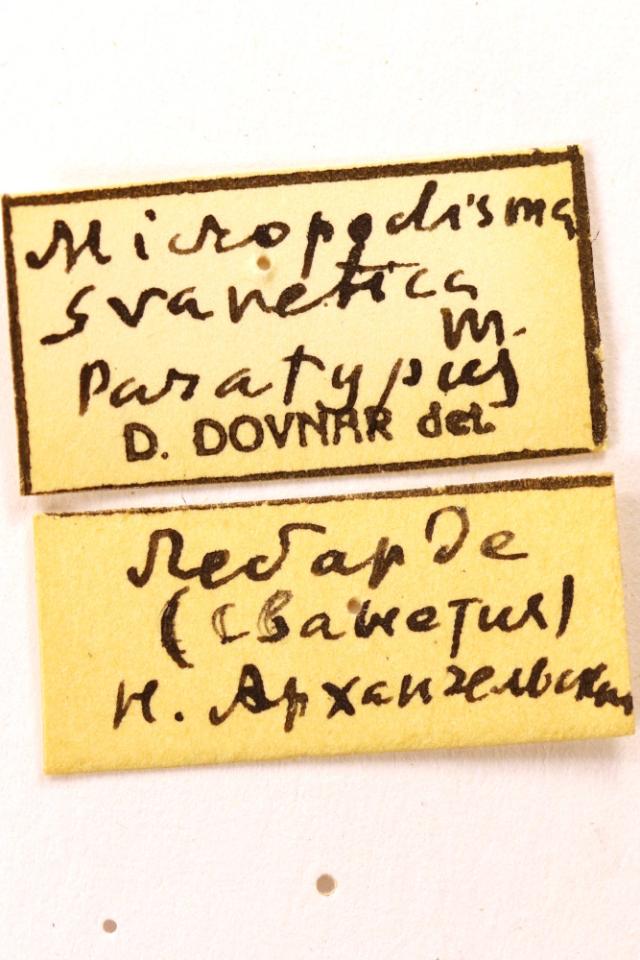 Micropodisma
svanetica
m.
Paratypus
D. DOVNAR det.
Лебарде
(Сванетия)
Н. Архангельский